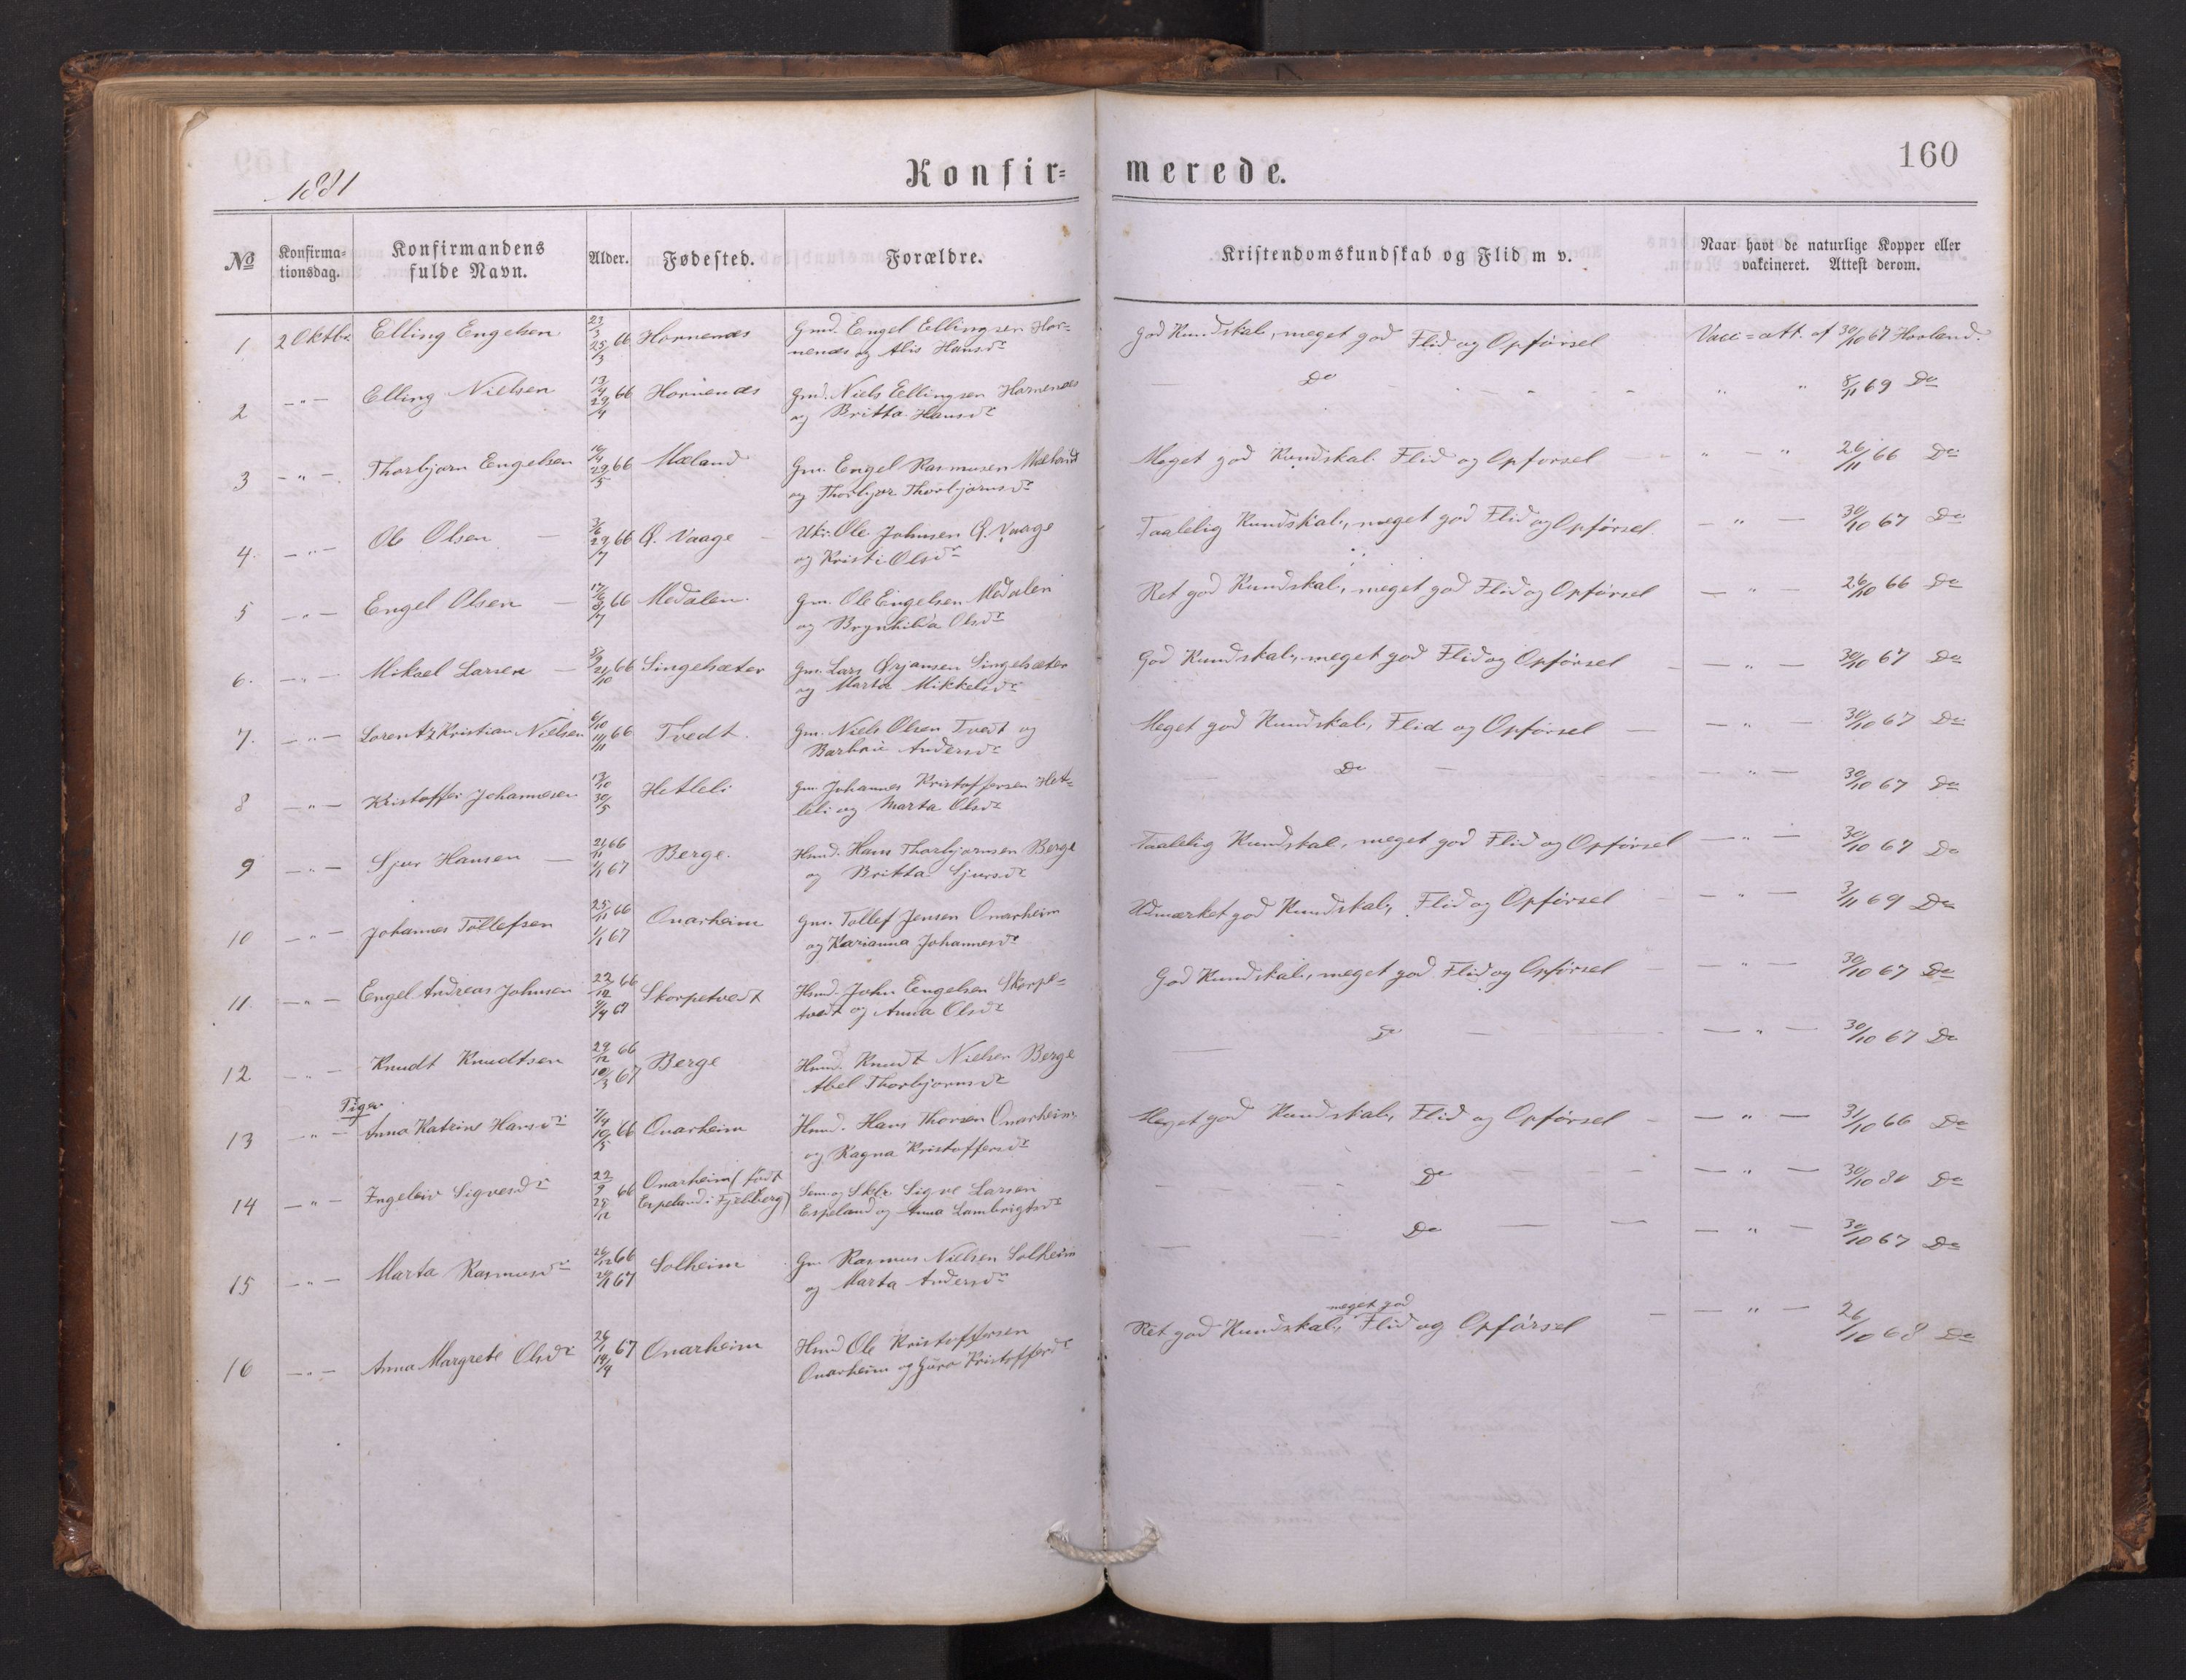 1881
Konfir=
merede.
160
No
Konfirma=
tionsdag.
Konfirmandens
fulde Navn.
Alder.
Fødested.
Forældre.
Kristendomskundskab og Flid m v.
Naar havt de naturlige Kopper eller
vakcineret. Attest derom.
1 2 Oktbr. Elling Engelsen 23/3 25/3 66 Hornenæs Gmd. Engel Ellingsen Hor=
nenæs og Alis Hansdr
God Kundskab, meget god Flid og Opførsel Vacc=att. af 30/10 67 Hovland.
2 -"- Elling Nielsen 13/4 29/4 66 Hornenæs Gmd. Niels Ellingsen Hornenæs
og Britta Hansdr
Do " " 8/11 69 Do
3 -"- Thorbjørn Engelsen 29/5 66 Mæland Gm. Engel Rasmusen Mæland
og Thorbjør Thorbjørnsdr
Meget god Kundskab Flid og Opførsel " - " 26/11 66 Do
4. -"- Ole Olsen 3/6 29/7 66 Ø. Vaage Ole Johnsen Ø. Vaage
og Kristi Olsdr
Taalelig Kundskab, meget god Flid og Opførsel - " - 30/10 67 Do
5 -"- Engel Olsen 17/6 8/7 66 Medalen Gm. Ole Engelsen Medalen
og Brynhilda Olsdr
Ret god Kundskab, meget god Flid og Opførsel - " - 26/10 66 Do
6. -"- Mikael Larsen 21/10 66 Singelsæter Gm. Lars Ørjansen Singelsæter
og Marta Mikkelsdr
God Kundskab, meget god Flid og Opførsel - " - 30/10 67 Do
7. -"- Lorentz Kristian Nielsen 6/10 14/11 66 Tvedt. Gm. Niels Olsen Tvedt og
Barbru Andersdr
Meget god Kundskab, Flid og Opførsel - " - 30/10 67 Do
8 -"- Kristoffer Johannesen 17/10 30/5 Hetleli Gm. Johannes Kristoffersen Het=
leli og Marta Olsdr
Do - " - 30/10 67 Do
9 -"- Sjur Hansen 21/11 66 1/1 67 Berge. Hsmd. Hans Thorbjørnsen Berge
og Britta Sjursdr
Taalelig Kundskab, meget god Flid og Opførsel - " - 30/10 67 Do
10 -"- Johannes Tollefsen 25/11 66 1/1 67 Onarheim Gm. Tollef Jensen Onarheim
og Karianna Johannesdr
Udmærket god Kundskab, Flid og Opførsel - " - 3/11 69 Do
11. -"- Engel Andreas Johnsen 22/12 66 2/4 67 Skorpetvedt Hsmd. John Engelsen Skorpe=
tvedt og Anna Olsdr
God Kundskab, meget god Flid og Opførsel - " - 30/10 67 Do
12 -"- Knudt Knudtsen 29/12 66 10/3 67 Berge Hsmd. Knudt Nielsen Berge
Abel Thorbjørnsdr
Do - " - 30/10 67 Do
Piger
13 -"- Anna Katrine Hansdr 10/5 66 Onarheim Hsmd. Hans Thorsen Onarheim
og Ragna Kristoffersdr
Meget god Kundskab, Flid og Opførsel - " - 31/10 66 Do
14 -"- Ingeleiv Sigvesdr 22/9 28/12 66 Onarheim (født
Espeland i Fjeldberg) Sem. og Sklr. Sigve Larsen
Espeland og Anna Lambrigtsdr
Do - " - 30/10 80 Do
15 -"- Marta Rasmusdr 26/12 66 20/1 67 Solheim Gm Rasmus Nielsen Solheim
og Marta Andersdr
Do - " - 30/10 67 Do
16 -"- Anna Margrete Olsdr 26/1 14/4 67 Onarheim Hsmd Ole Kristoffersen
Onarheim og Guro Kristoffersdr
meget god
Ret god Kundskab, Flid og Opførsel - " - 26/10 68 Do